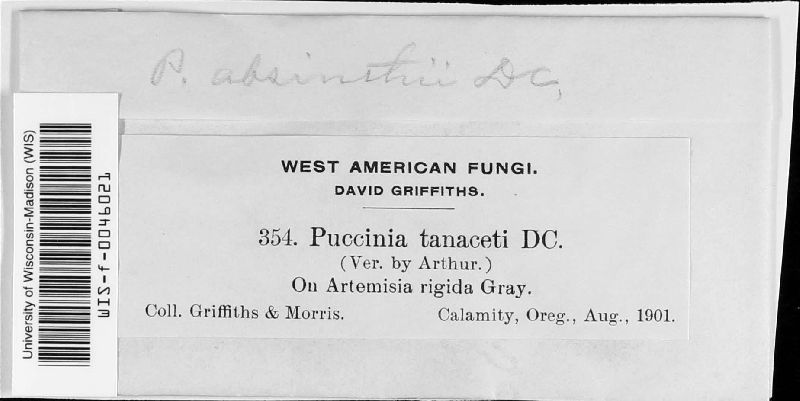 P. absinthii DC,
WEST AMERICAN FUNGI.
DAVID GRIFFITHS.
354. Puccinia tanaceti DC.
(Ver. by Arthur.)
On Artemisia rigida Gray.
Coll. Griffiths & Morris. Calamity, Oreg., Aug., 1901.
University of Wisconsin-Madison (WIS)
WIS-f-0046021